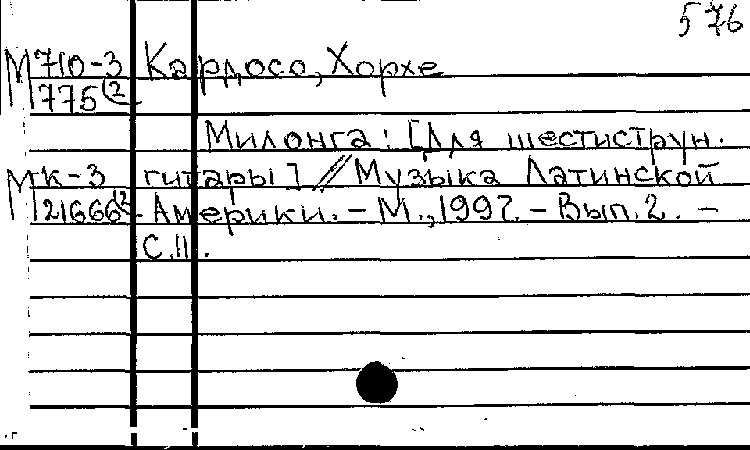 576
М 710-3 Кардосо, Хорхе
775(2
Милонга: [Для шестиструн.
МК-3 гитары] // Музыка Латинской
21666(2 Америки. - М., 1997. - Вып. 2. -
С. 11.